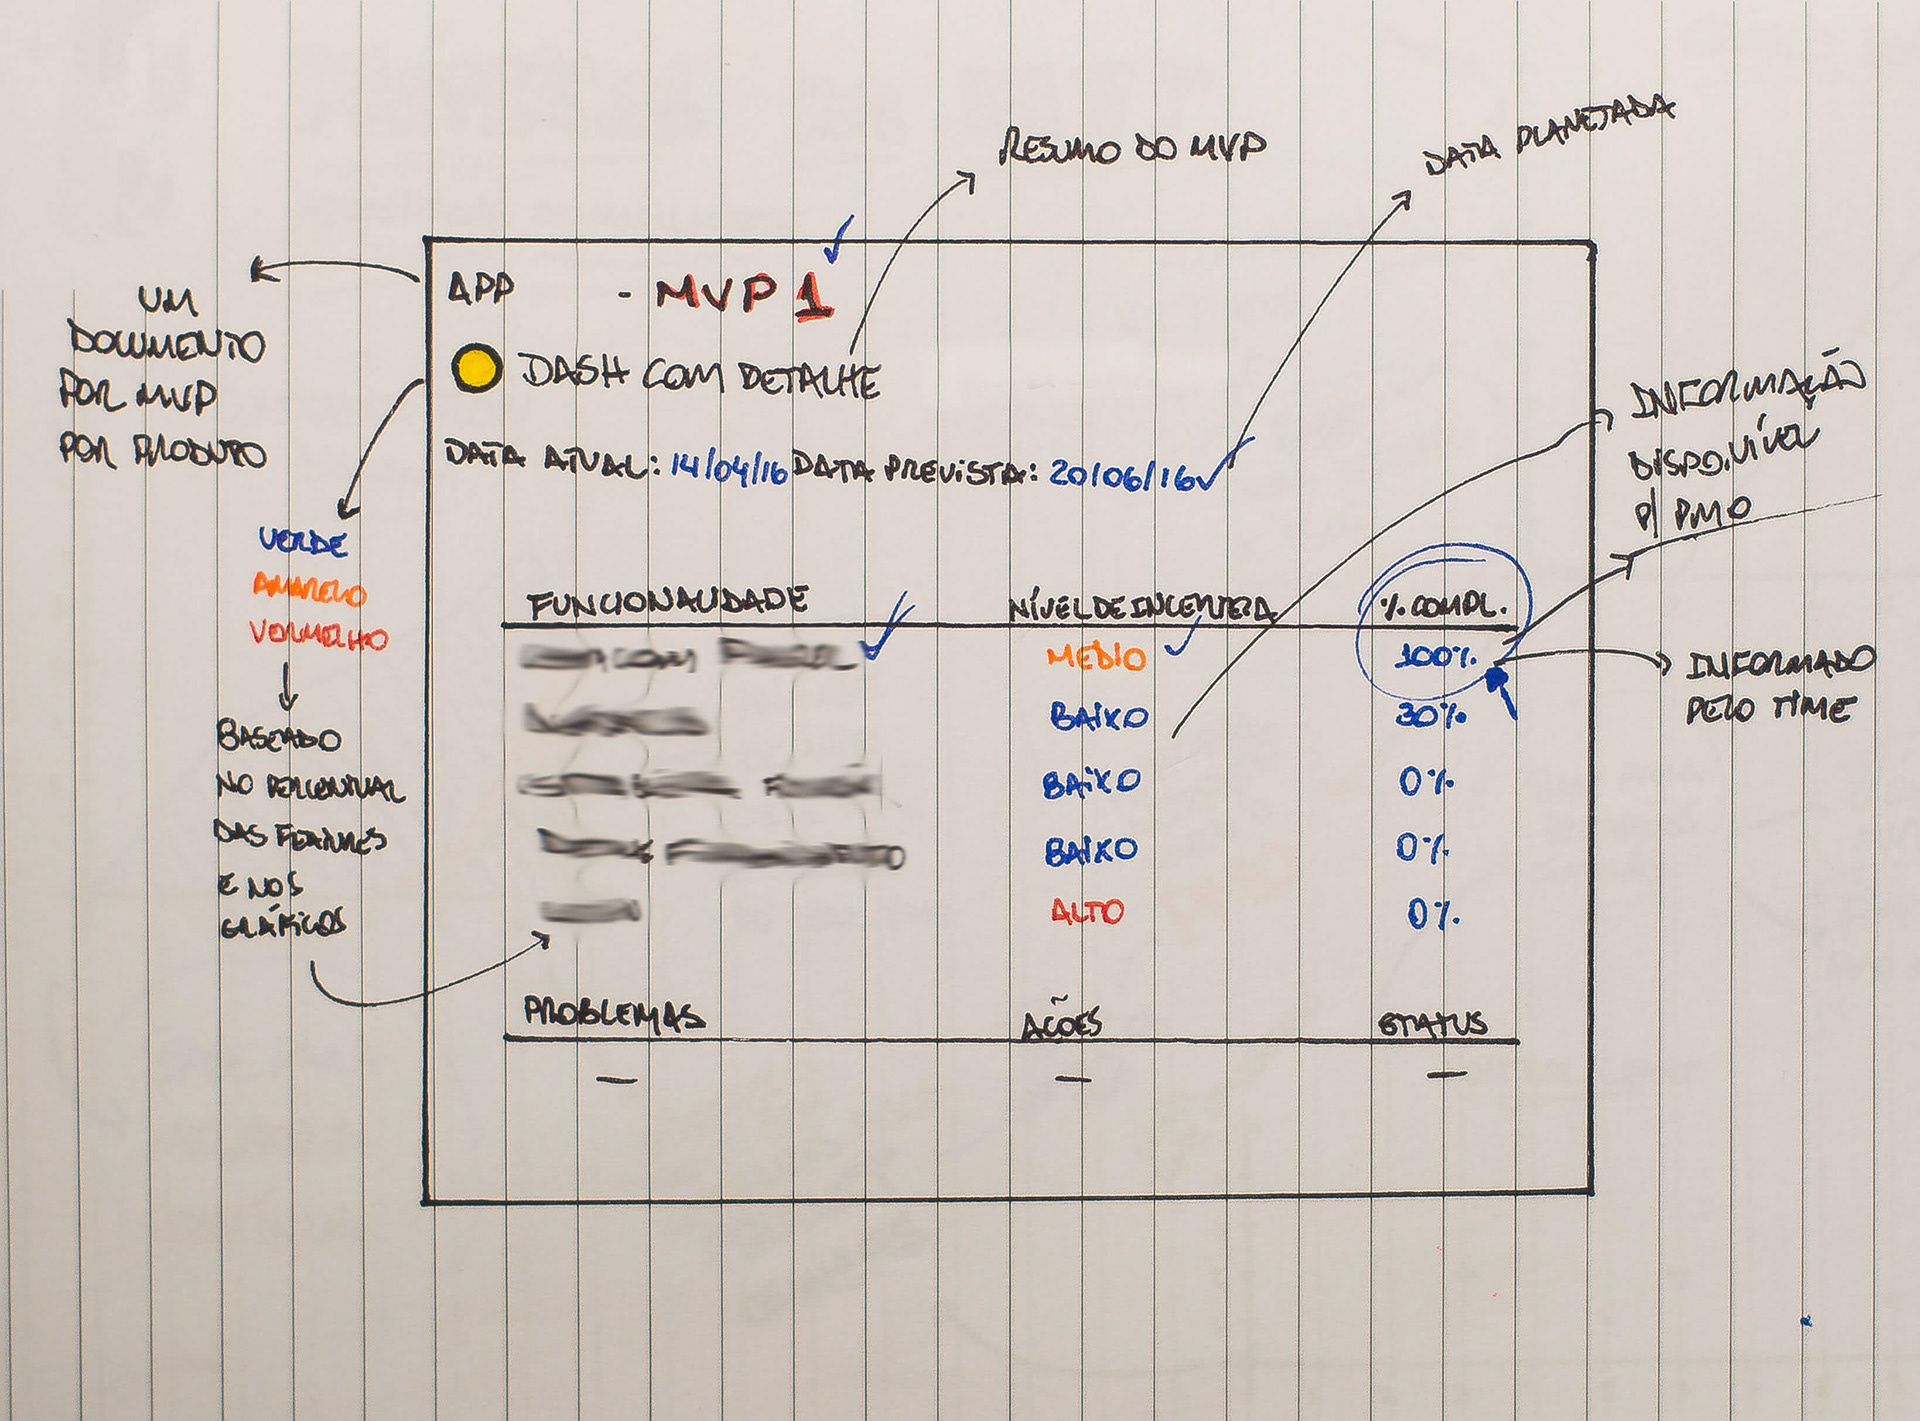 RESUMO DO MVP
DATA PLANEJADA
UM
DOCUMENTO
POR MVP
POR PRODUTO
APP - MVP 1
DASH COM DETALHE
DATA ATUAL: 14/04/16 DATA PREVISTA: 20/06/16
INFORMAÇÃO
DISPONÍVEL
P/ PMO
VERDE
AMARELO
VERMELHO
BASEADO
NO PERCENTUAL
DAS FEATURES
E NOS
GRÁFICOS
FUNCIONALIDADE NÍVEL DE INCERTEZA % COMPL.
COM
MEDIO 100%
BAIXO 30%
BAIXO 0%
BAIXO 0%
ALTO 0%
INFORMADO
PELO TIME
PROBLEMAS AÇÕES STATUS
— — —